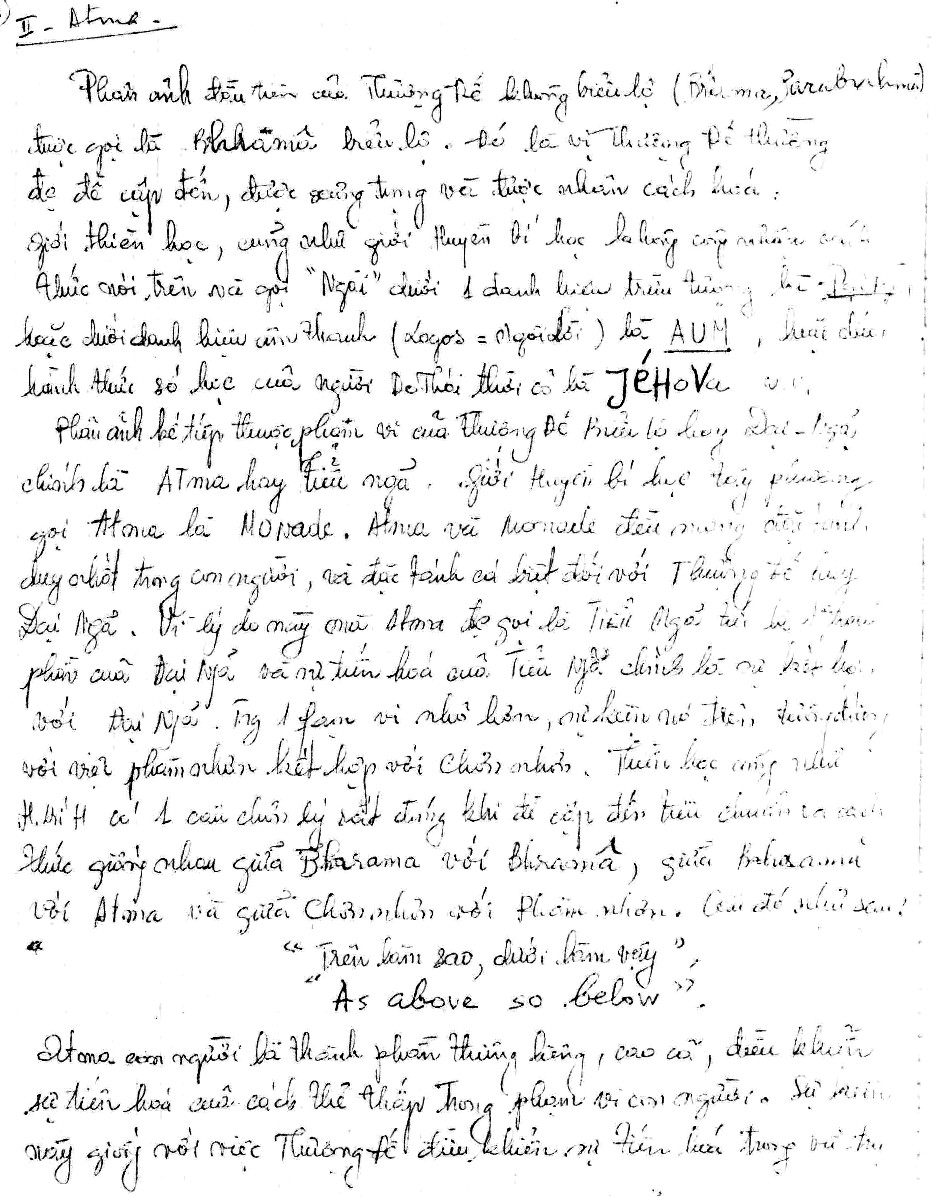 II - Atma -
Phản ảnh đầu tiên của Thượng Đế không biểu lộ (
được gọi là Bhhâmâ biểu lộ. Đó là vị Thượng Đế thường
đc đề cập đến, được xưng tụng và được nhân cách hoá.
Giới thiên học, cũng như giới Huyền bí học không công nhận cách
thức nói trên và gọi "Ngài" dưới 1 danh hiệu trừu tượng là
hoặc dưới danh hiệu âm thanh (Logos = Ngôi lời) là AUM, hoặc dưới
hành thức số học của người Do Thái thời cổ là JÉHOVa v.v.
Phản ảnh kế tiếp thuộc phạm vi của Thượng Đế Biểu lộ hay Đại-Ngã,
chính là ATma hay tiểu ngã. Giới Huyền bí học tây phương
gọi Atma là MONade. Atma và Monade đều mang đặc tánh
duy nhất trong con người, và đặc tánh cá biệt đối với Thượng Đế hay
Đại Ngã. Vì lý do này mà Atma đc gọi là TIỂU NGÃ tức là 1 thành
phần của Đại Ngã và sự tiến hoá của Tiểu Ngã chính là sự kết hợp
với Đại Ngã. Trg 1 fạm vi nhỏ hơn, sự kiện nó trên tương đương
với việc phàm nhơn kết hợp với Chơn nhơn. Thiên học cũng như
H.bí H có 1 câu chân lý rất đúng khi đề cập đến tiêu chuẩn và cách
thức giống nhau giữa Bhrama với Bhramâ, giữa Bhrama
với Atma và giữa Chơn nhơn với Phàm nhơn. Câu đó như sau:
"Trên làm sao, dưới làm vậy".
"As above so below".
Atma con người là thành phần thiêng liêng, cao cả, điều khiển
sự tiến hoá của các thể thấp trong phạm vi con người. Sự kiện
này giống với việc Thượng Đế điều khiển sự tiến hoá trong vũ trụ